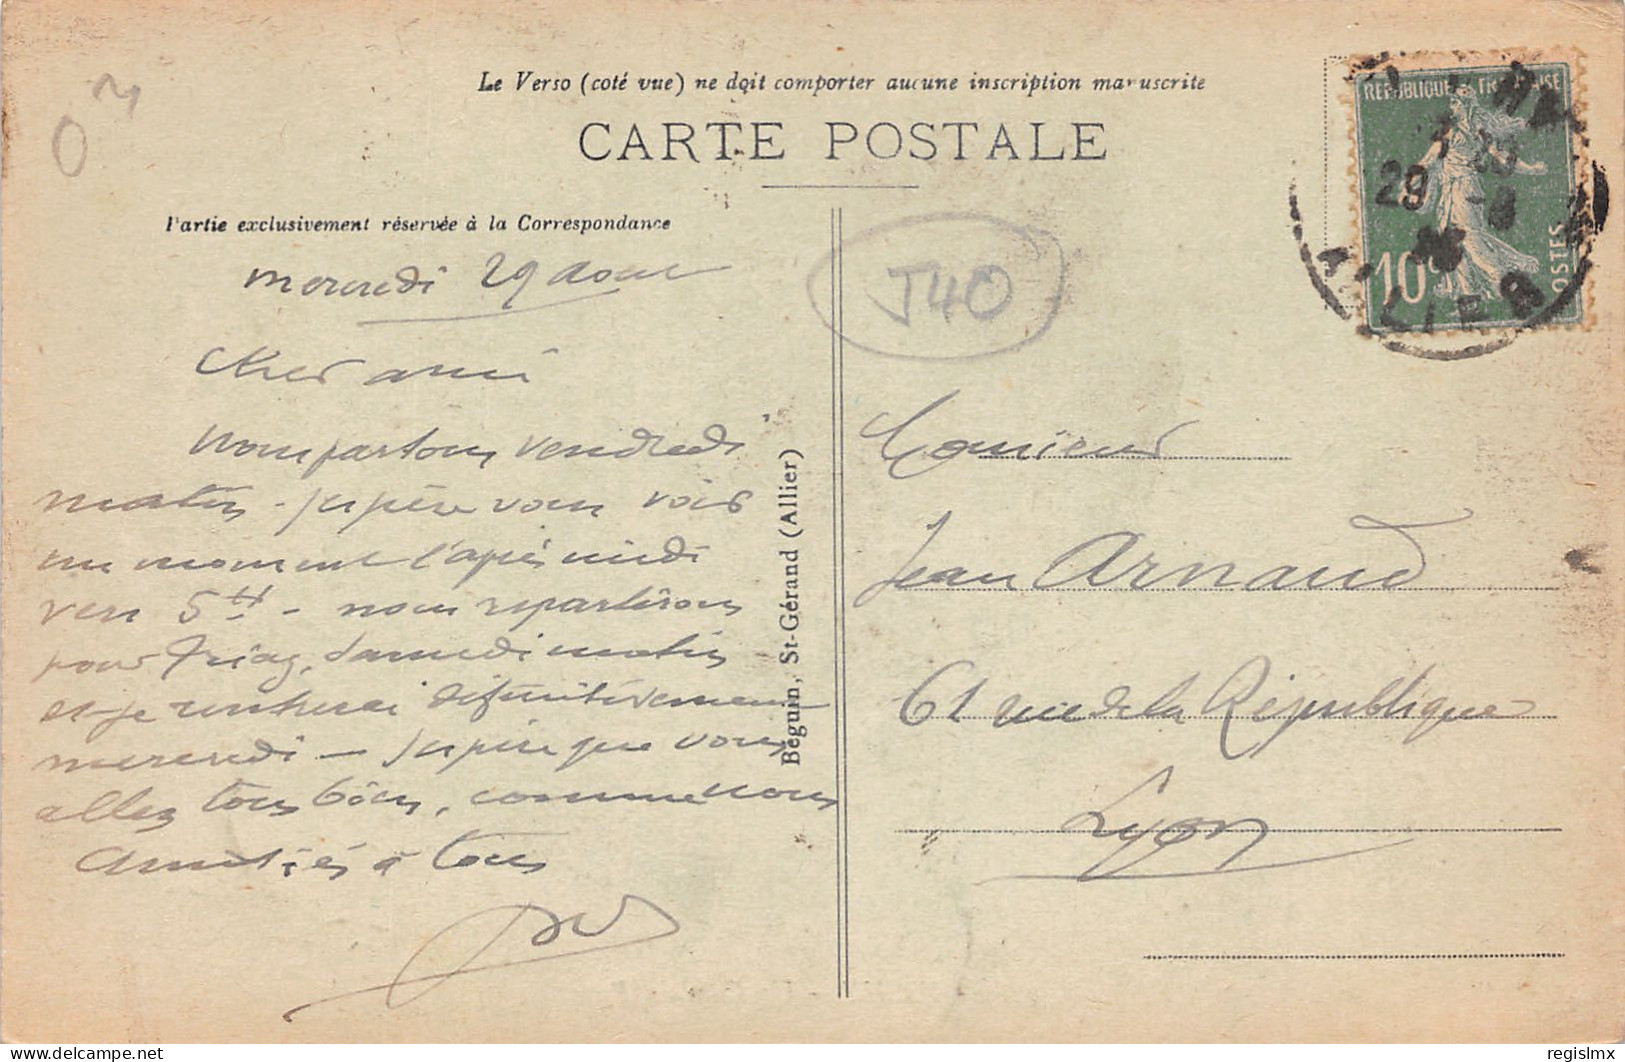 Le Verso (coté vue) ne doit comporter aucune inscription manuscrite
CARTE POSTALE
Partie exclusivement réservée à la Correspondance
RÉPUBLIQUE FRANÇAISE
10c
POSTES
29 - 8
ALLIER
J40
mercredi 29 aout
Cher ami
Nous partons vendredi
matin - j'espère vous voir
un moment l'après midi
vers 5 H - nous repartirons
pour samedi matin
et je rentrerai définitivement
mercredi - j'espère que vous
allez tous bien, comme nous
Amitiés à tous
Monsieur
Jean Arnaud
61 rue de la République
Lyon
Béguin, St-Gérand (Allier)
delcampe.net
regislmx